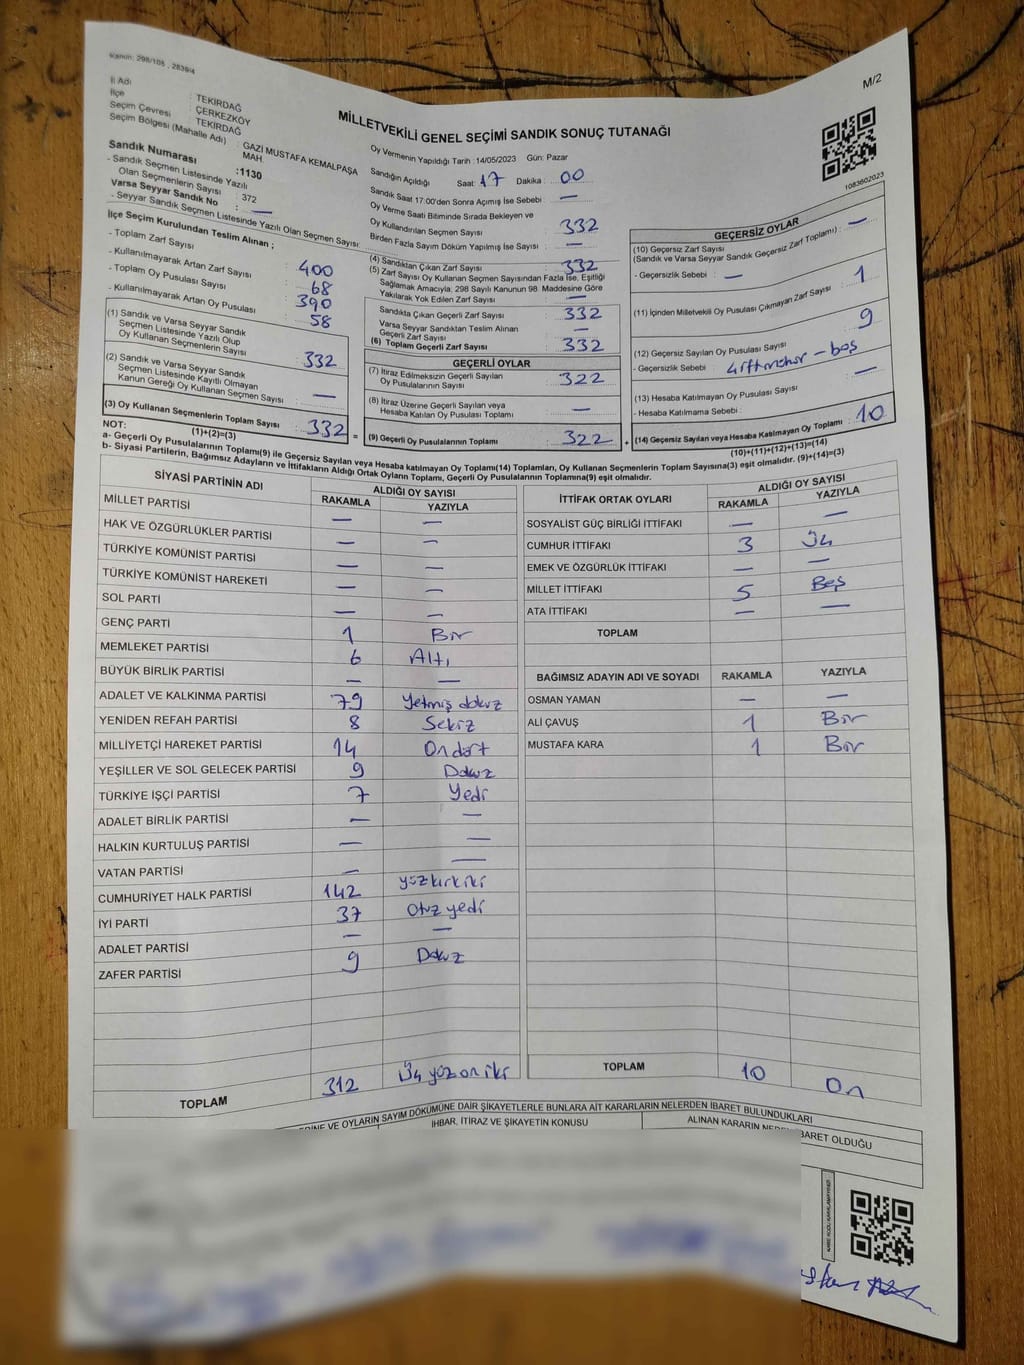 Kanun: 298/105 , 2839/4
M/2
İl Adı : TEKİRDAĞ
İlçe : ÇERKEZKÖY
Seçim Çevresi : TEKİRDAĞ
Seçim Bölgesi (Mahalle Adı) : GAZİ MUSTAFA KEMALPAŞA MAH.
MİLLETVEKİLİ GENEL SEÇİMİ SANDIK SONUÇ TUTANAĞI
1083602023
Sandık Numarası :1130
- Sandık Seçmen Listesinde Yazılı
Olan Seçmenlerin Sayısı : 372
Varsa Seyyar Sandık No : —
- Seyyar Sandık Seçmen Listesinde Yazılı Olan Seçmen Sayısı:
İlçe Seçim Kurulundan Teslim Alınan ;
- Toplam Zarf Sayısı : 400
- Kullanılmayarak Artan Zarf Sayısı : 68
- Toplam Oy Pusulası Sayısı : 390
- Kullanılmayarak Artan Oy Pusulası : 58
(1) Sandık ve Varsa Seyyar Sandık
Seçmen Listesinde Yazılı Olup
Oy Kullanan Seçmenlerin Sayısı : 332
(2) Sandık ve Varsa Seyyar Sandık
Seçmen Listesinde Kayıtlı Olmayan
Kanun Gereği Oy Kullanan Seçmen Sayısı : —
(3) Oy Kullanan Seçmenlerin Toplam Sayısı : 332
(1)+(2)=(3)
Oy Vermenin Yapıldığı Tarih : 14/05/2023 Gün: Pazar
Sandığın Açıldığı Saat: 17 Dakika : 00
Sandık Saat 17:00'den Sonra Açılmış İse Sebebi : —
Oy Verme Saati Bitiminde Sırada Bekleyen ve
Oy Kullandırılan Seçmen Sayısı : 332
Birden Fazla Sayım Döküm Yapılmış İse Sayısı : —
(4) Sandıktan Çıkan Zarf Sayısı : 332
(5) Zarf Sayısı Oy Kullanan Seçmen Sayısından Fazla İse, Eşitliği
Sağlamak Amacıyla; 298 Sayılı Kanunun 98. Maddesine Göre
Yakılarak Yok Edilen Zarf Sayısı : —
Sandıkta Çıkan Geçerli Zarf Sayısı : 332
Varsa Seyyar Sandıktan Teslim Alınan
Geçerli Zarf Sayısı : —
(6) Toplam Geçerli Zarf Sayısı : 332
GEÇERLİ OYLAR
(7) İtiraz Edilmeksizin Geçerli Sayılan
Oy Pusulalarının Sayısı : 322
(8) İtiraz Üzerine Geçerli Sayılan veya
Hesaba Katılan Oy Pusulası Toplamı : —
= (9) Geçerli Oy Pusulalarının Toplamı : 322
GEÇERSİZ OYLAR
(10) Geçersiz Zarf Sayısı : —
(Sandık ve Varsa Seyyar Sandık Geçersiz Zarf Toplamı)
- Geçersizlik Sebebi : —
(11) İçinden Milletvekili Oy Pusulası Çıkmayan Zarf Sayısı : 1
(12) Geçersiz Sayılan Oy Pusulası Sayısı : 9
- Geçersizlik Sebebi : — boş
(13) Hesaba Katılmayan Oy Pusulası Sayısı : —
- Hesaba Katılmama Sebebi :
+ (14) Geçersiz Sayılan veya Hesaba Katılmayan Oy Toplamı : 10
(10)+(11)+(12)+(13)=(14)
NOT:
a- Geçerli Oy Pusulalarının Toplamı(9) ile Geçersiz Sayılan veya Hesaba katılmayan Oy Toplam(14) Toplamları, Oy Kullanan Seçmenlerin Toplam Sayısına(3) eşit olmalıdır. (9)+(14)=(3)
b- Siyasi Partilerin, Bağımsız Adayların ve İttifakların Aldığı Ortak Oyların Toplamı, Geçerli Oy Pusulalarının Toplamına(9) eşit olmalıdır.
SİYASİ PARTİNİN ADI ALDIĞI OY SAYISI
RAKAMLA YAZIYLA
MİLLET PARTİSİ — —
HAK VE ÖZGÜRLÜKLER PARTİSİ — —
TÜRKİYE KOMÜNİST PARTİSİ — —
TÜRKİYE KOMÜNİST HAREKETİ — —
SOL PARTİ — —
GENÇ PARTİ 1 Bir
MEMLEKET PARTİSİ 6 Altı
BÜYÜK BİRLİK PARTİSİ — —
ADALET VE KALKINMA PARTİSİ 79 Yetmiş dokuz
YENİDEN REFAH PARTİSİ 8 Sekiz
MİLLİYETÇİ HAREKET PARTİSİ 14 On dört
YEŞİLLER VE SOL GELECEK PARTİSİ 9 Dokuz
TÜRKİYE İŞÇİ PARTİSİ 7 Yedi
ADALET BİRLİK PARTİSİ — —
HALKIN KURTULUŞ PARTİSİ — —
VATAN PARTİSİ — —
CUMHURİYET HALK PARTİSİ 142 yüzkırkiki
İYİ PARTİ 37 Otuz yedi
ADALET PARTİSİ — —
ZAFER PARTİSİ 9 Dokuz
TOPLAM 312 Üç yüz on iki
İTTİFAK ORTAK OYLARI ALDIĞI OY SAYISI
RAKAMLA YAZIYLA
SOSYALİST GÜÇ BİRLİĞİ İTTİFAKI — —
CUMHUR İTTİFAKI 3 Üç
EMEK VE ÖZGÜRLÜK İTTİFAKI — —
MİLLET İTTİFAKI 5 Beş
ATA İTTİFAKI — —
TOPLAM
BAĞIMSIZ ADAYIN ADI VE SOYADI RAKAMLA YAZIYLA
OSMAN YAMAN — —
ALİ ÇAVUŞ 1 Bir
MUSTAFA KARA 1 Bir
TOPLAM 10 On
VE OYLARIN SAYIM DÖKÜMÜNE DAİR ŞİKAYETLERLE BUNLARA AİT KARARLARIN NELERDEN İBARET BULUNDUKLARI
İHBAR, İTİRAZ VE ŞİKAYETİN KONUSU
ALINAN KARARIN NEDEN İBARET OLDUĞU